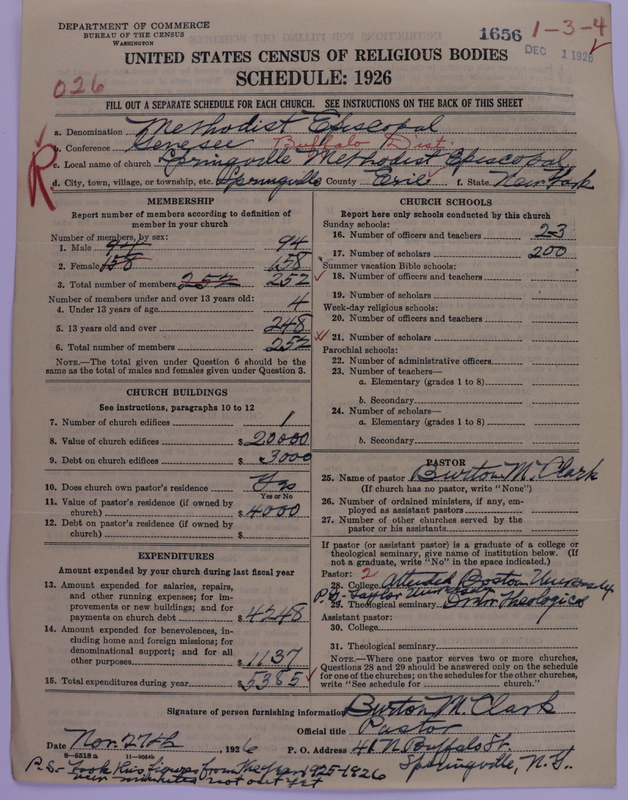 DEPARTMENT OF COMMERCE
BUREAU OF THE CENSUS
WASHINGTON
1656
1-3-4
DEC 1 1926
UNITED STATES CENSUS OF RELIGIOUS BODIES
SCHEDULE: 1926
026
FILL OUT A SEPARATE SCHEDULE FOR EACH CHURCH. SEE INSTRUCTIONS ON THE BACK OF THIS SHEET
R
a. Denomination Methodist Episcopal
b. Conference Genesee Buffalo Dist.
c. Local name of church Springville Methodist Episcopal
d. City, town, village, or township, etc. Springville County Erie f. State New York
MEMBERSHIP
Report number of members according to definition of
member in your church
Number of members, by sex:
1. Male 94 94
2. Female 158 158
3. Total number of members 252 252
Number of members under and over 13 years old:
4. Under 13 years of age 4
5. 13 years old and over 248
6. Total number of members 252
NOTE.—The total given under Question 6 should be
same as the total of males and females given under Question 3.
CHURCH BUILDINGS
See instructions, paragraphs 10 to 12
7. Number of church edifices 1
8. Value of church edifices $ 20000
9. Debt on church edifices $ 3000
10. Does church own pastor's residence Yes
Yes or No
11. Value of pastor's residence (if owned by
church) $ 4000
12. Debt on pastor's residence (if owned by
church) $
EXPENDITURES
Amount expended by your church during last fiscal year
13. Amount expended for salaries, repairs,
and other running expenses; for im-
provements or new buildings; and for
payments on church debt $ 4248
14. Amount expended for benevolences, in-
cluding home and foreign missions; for
denominational support; and for all
other purposes $ 1137
15. Total expenditures during year $ 5385
CHURCH SCHOOLS
Report here only schools conducted by this church
Sunday schools:
16. Number of officers and teachers 23
17. Number of scholars 200
Summer vacation Bible schools:
18. Number of officers and teachers
19. Number of scholars
Week-day religious schools:
20. Number of officers and teachers
21. Number of scholars
Parochial schools:
22. Number of administrative officers
23. Number of teachers—
a. Elementary (grades 1 to 8)
b. Secondary
24. Number of scholars—
a. Elementary (grades 1 to 8)
b. Secondary
PASTOR
25. Name of pastor Burton M. Clark
(If church has no pastor, write "None")
26. Number of ordained ministers, if any, em-
ployed as assistant pastors
27. Number of other churches served by the
pastor or his assistants
If pastor (or assistant pastor) is a graduate of a college or
theological seminary, give name of institution below. (If
not a graduate, write "No" in the space indicated.)
Pastor: 2
28. College Attended Boston University
P.G. Taylor University
29. Theological seminary Theological
Assistant pastor:
30. College
31. Theological seminary
NOTE.—Where one pastor serves two or more churches,
Questions 28 and 29 should be answered only on the schedule
for one of the churches; on the schedules for the other churches,
write "See schedule for church."
Signature of person furnishing information Burton M. Clark
Official title Pastor
Date Nov. 27th, 1926 P. O. Address 41 N. Buffalo St.
8—5518a 11—9554b
Springville, N.Y.
P.S.- Took this figures from the year 1925-1926
new minutes not out yet